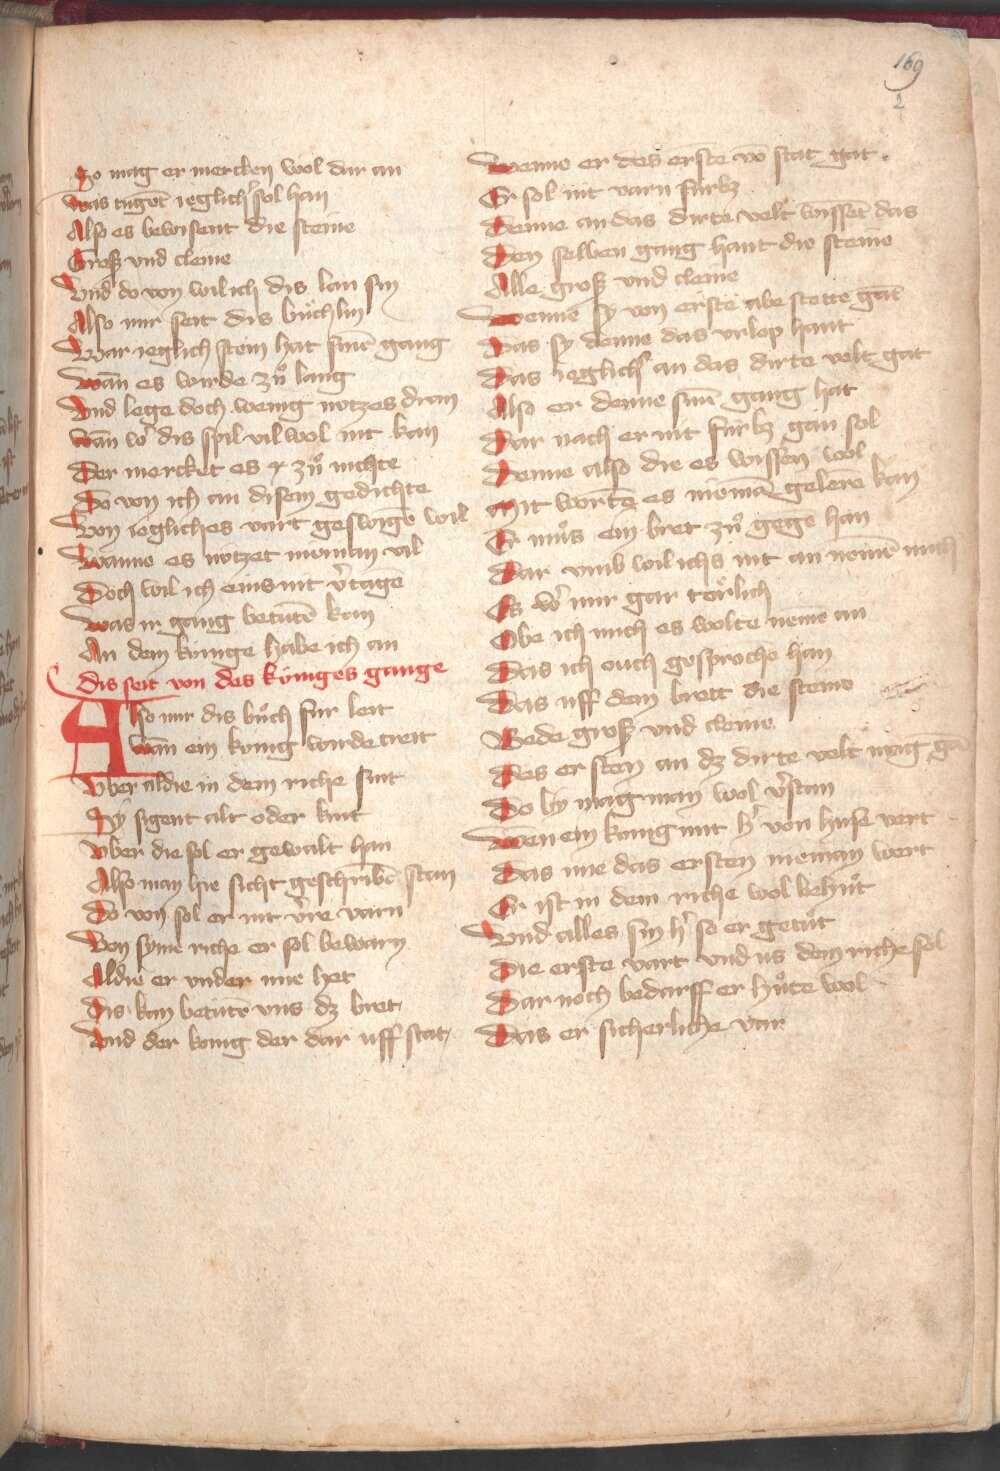 169
2
So mag er mercken wol dar an
Was tugēt ieglich' sol han
Also es bewisent die steine
Groß vnd cleine
Vnd do von wil ich dis lan sin
Also mir seit dis bu̍chlin
War ieglich stein hat sinē gang
Wān es wurde zů lang
Vnd lege doch wenig nutzes dran
Wān w' dis spil vil wol nit kan
Der mercket es zů nichte
Do von ich an disem gedichte
Von iegliches vart geswigē wil
Wanne es nu̍tzet nieman vil
Doch wil ich eins nit v'tagē
Was ir gang betu̍tē kan
An dem ku̍nige habe ich an
dis seit von des ku̍niges gange
Also mir dis bu̍ch fur leit
Wān ein kunig wurdecreit
Vber aldie in dem riche sint
Sy sigent alt oder kint
Vber die sol er gewalt han
Also man hie sicht geschribē stan
Do von sol er nit v're varn
Von syme riche er sol bewarn
Aldie er vnder ime het
Dis kan betu̍tē vns dz bret
Vnd der konig der dar uff stat
Wenne er des erste vō stat gat
Er sol nit varn fu̍rbz
Denne an das dirte velt wissēt das
Den selben gang hant die steine
Alle groß vnd cleine
Wenne sy von erste abe stette gāt
Das sy denne das vrlop hant
Das ieglich' an das dirte velt gat
Also er denne sinē gang hat
Dar nach er nit fu̍rbz gan sol
Denne also die es wissen wol
Mit wortē es niemā gelerē kan
Er mu̍s ein bret zů gegē han
Dar vmb wil ichs nit an nemē mich
Es w' mir gar tōrlich
Obe ich mich es wolte neme an
Das ich ouch gesprochē han
Das uff dem brett die steine
Bede groß vnd cleine
Des ersten an dz dirte velt mag gā
Do by mag man wol v'stan
Wēn ein kunig mit h' von huse vert
Das ime das ersten nieman wert
Er ist in dem riche wol behu̍t
Vnd alles sin h' so er getu̍t
Die erste vart vnd us dem riche sol
Dar noch bedarff er hu̍te wol
Das er sicherliche var